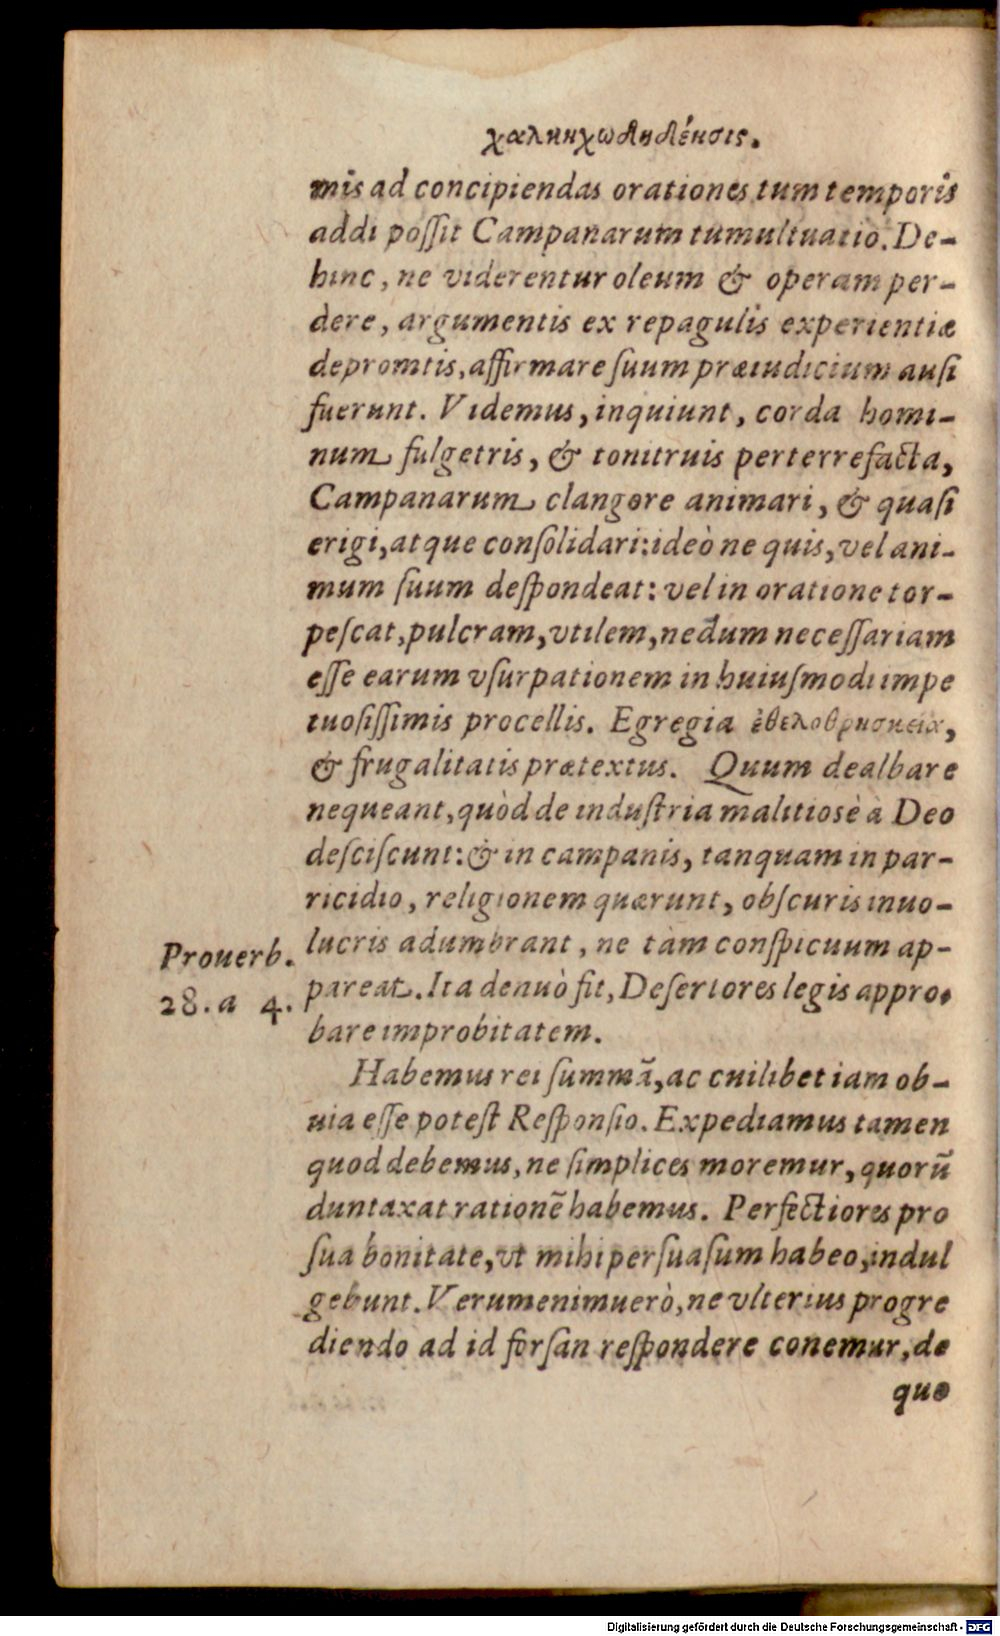 χαλκηχωδηδένσις.
mis ad concipiendas orationes tum temporis
addi poſſit Campanarum tumultuatio. De-
hinc, ne viderentur oleum & operam per-
dere, argumentis ex repagulis experientiæ
depromtis, affirmare ſuum præiudicium auſi
fuerunt. Videmus, inquiunt, corda homi-
num fulgetris, & tonitruis perterrefacta,
Campanarum clangore animari, & quaſi
erigi, atque conſolidari: ideò ne quis, vel ani-
mum ſuum deſpondeat: vel in oratione tor-
peſcat, pulcram, vtilem, nedum neceſſariam
eſſe earum vſurpationem in huiuſmodi impe
tuoſiſſimis procellis. Egregia ἐθελοθρησκεία,
& frugalitatis prætextus. Quum dealbare
nequeant, quòd de induſtria malitiosè à Deo
deſciſcunt: & in campanis, tanquam in par-
ricidio, religionem quærunt, obſcuris inuo-
lucris adumbrant, ne tàm conſpicuum ap-
pareat. Ita denuò fit, Deſertores legis appro-
bare improbitatem.
Prouerb.
28. a 4.
Habemus rei ſummã, ac cuilibet iam ob-
uia eſſe poteſt Reſponſio. Expediamus tamen
quod debemus, ne ſimplices moremur, quorũ
duntaxat rationẽ habemus. Perfectiores pro
ſua bonitate, vt mihi perſuaſum habeo, indul
gebunt. Verumenimuerò, ne vlterius progre
diendo ad id forſan reſpondere conemur, de
quo
Digitalisierung gefördert durch die Deutsche Forschungsgemeinschaft - DFG